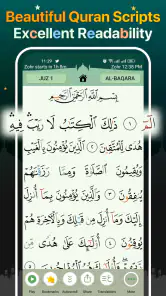 Beautiful Quran Scripts
Excellent Readability
11:29
Zohr starts in 1h 8m Zohr 12:38 PM
JUZ 1 AL-BAQARA
بِسْمِ اللّٰهِ الرَّحْمٰنِ الرَّحِيْمِ
الٓمّٓ ۚ ١ ذٰلِكَ الْكِتٰبُ لَا رَيْبَ ۛ فِيْهِ ۛ
هُدًى لِّلْمُتَّقِيْنَ ۙ ٢ الَّذِيْنَ يُؤْمِنُوْنَ
بِالْغَيْبِ وَيُقِيْمُوْنَ الصَّلٰوةَ وَمِمَّا رَزَقْنٰهُمْ
يُنْفِقُوْنَ ۙ ٣ وَالَّذِيْنَ يُؤْمِنُوْنَ بِمَآ اُنْزِلَ
اِلَيْكَ وَمَآ اُنْزِلَ مِنْ قَبْلِكَ ۚ وَبِالْاٰخِرَةِ هُمْ
Play Bookmark Autoscroll Share Translations More